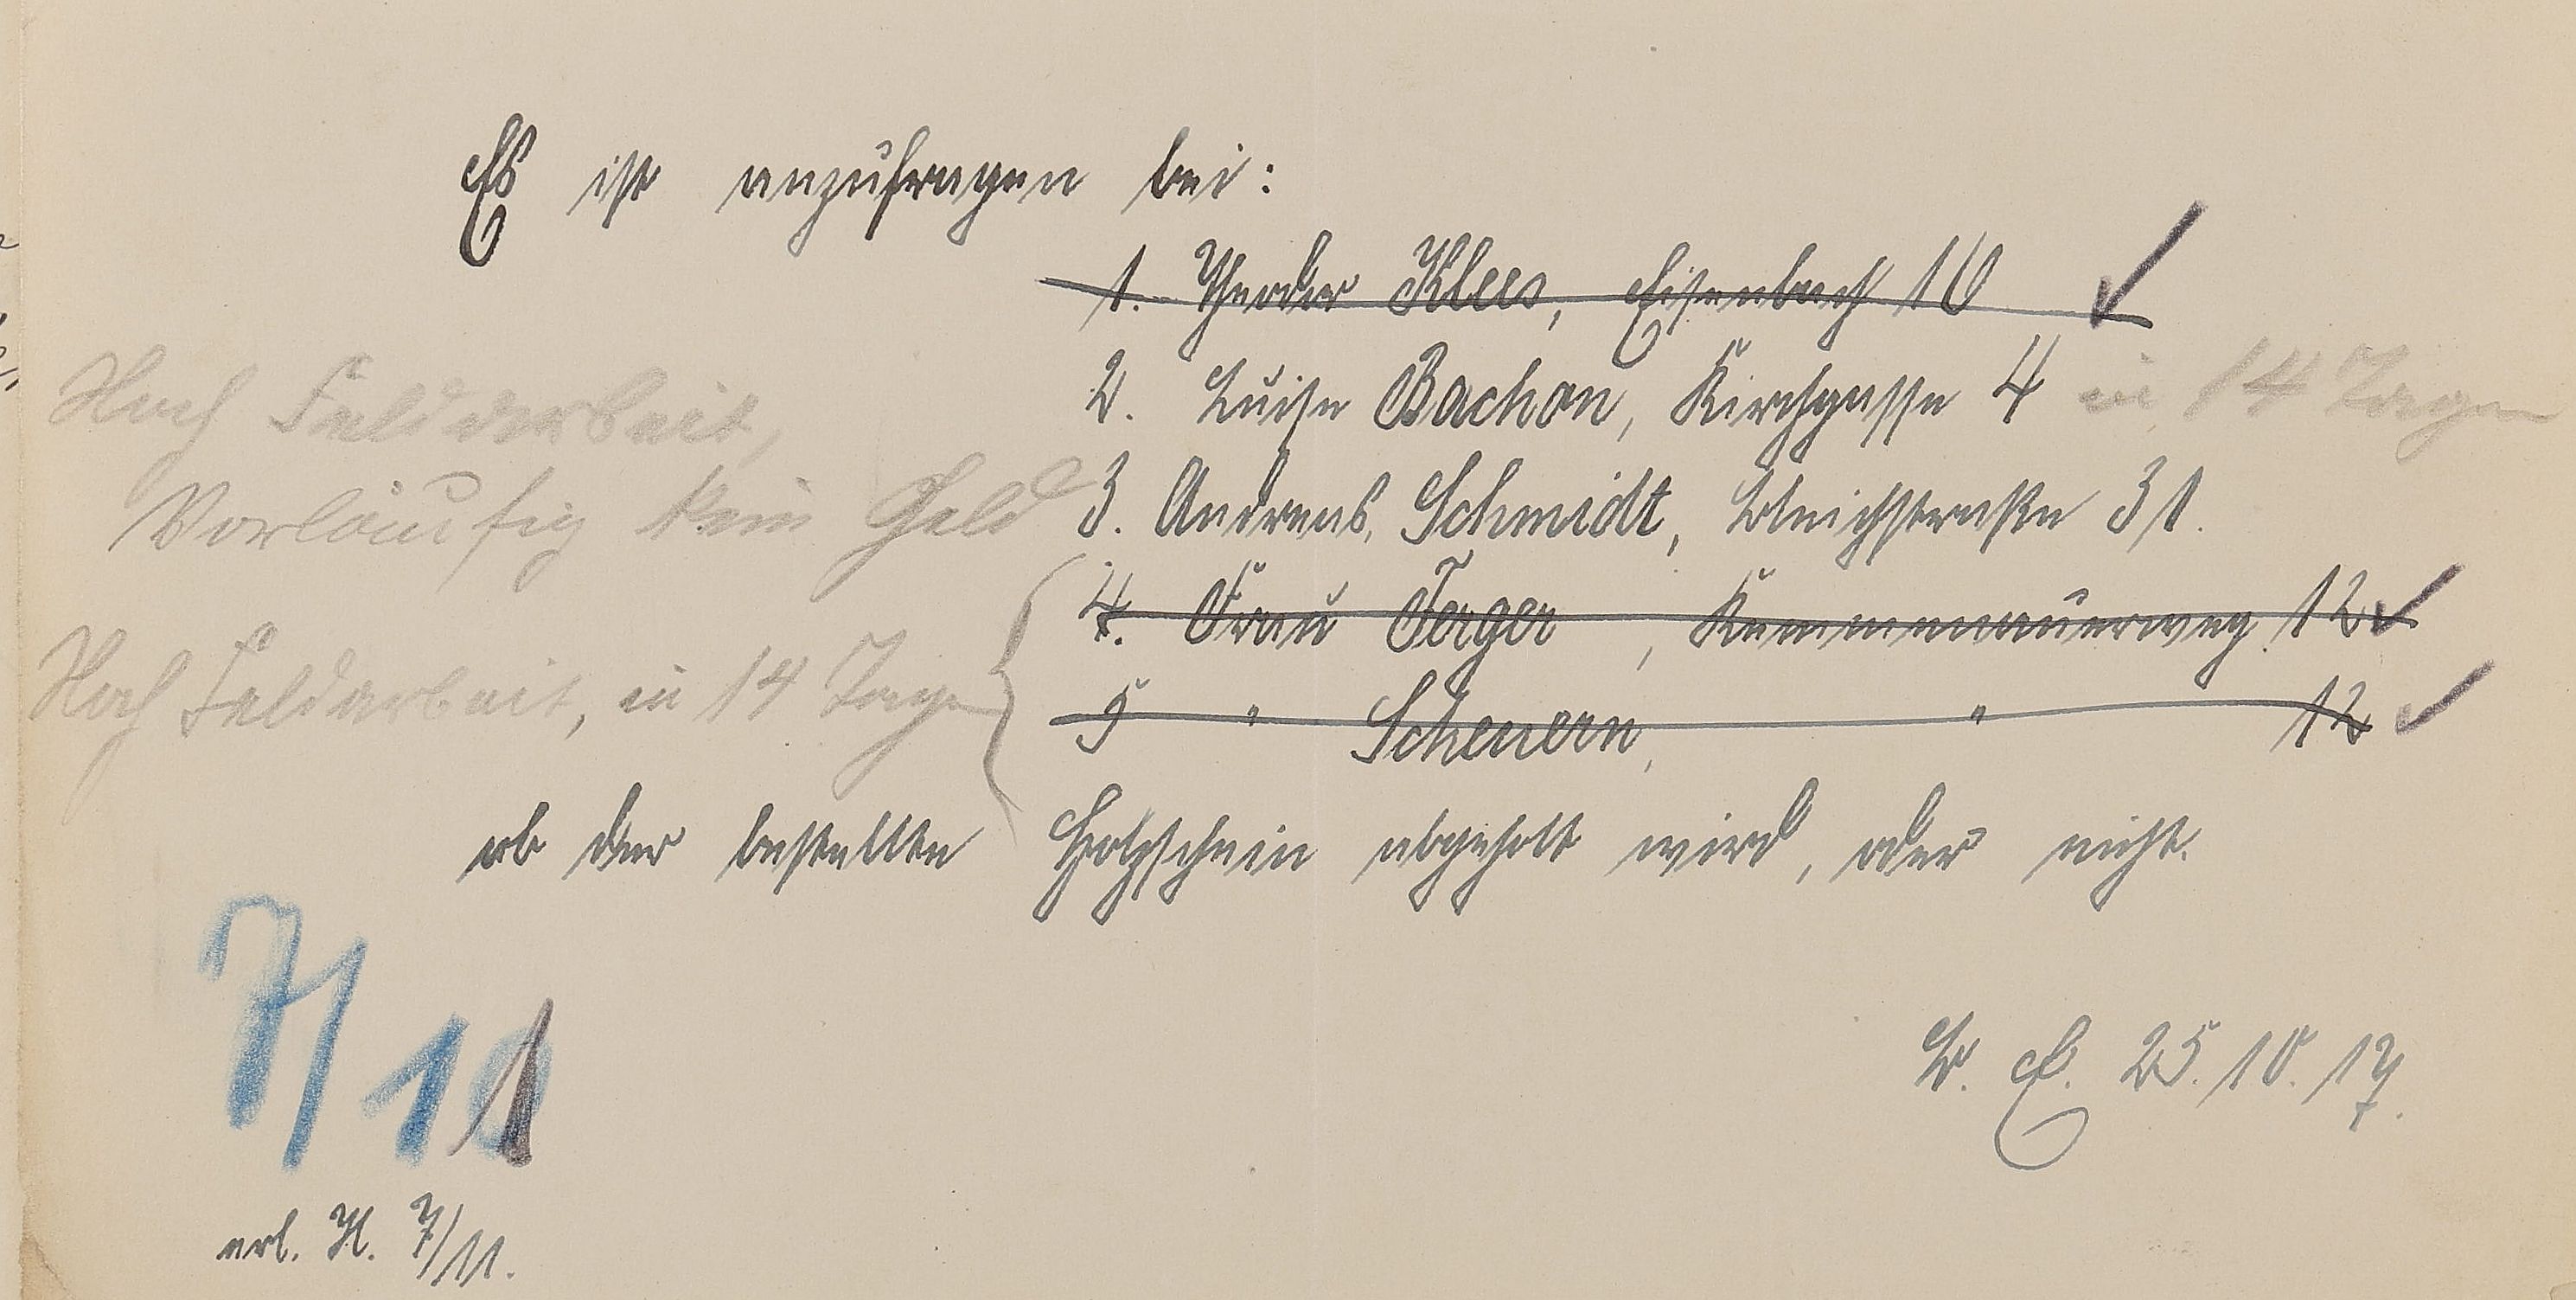 Es ist anzufragen bei:
1. Theodor Klees, Eisenbach 10
Noch Feldarbeit,
2. Luise Bachon, Kirchgasse 4 in 14 Tagen
Vorläufig kein Geld
3. Andreas Schmidt, Bleichstraße 31.
4. Frau Ferger, Kemmenauerweg 12
Noch Feldarbeit, in 14 Tagen
5 " Scheuern, " 12
ob der bestellte Holzschein abgeholt wird, oder nicht.
7/11
B. E. 25.10.17.
erl. H. 7/11.